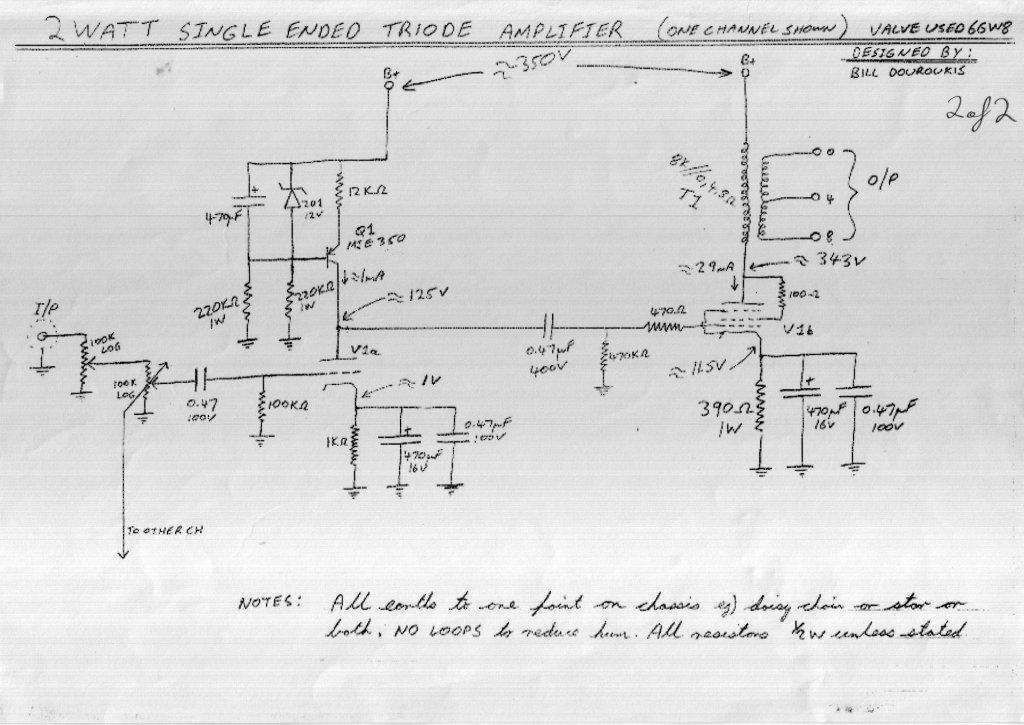 2 WATT SINGLE ENDED TRIODE AMPLIFIER (ONE CHANNEL SHOWN) VALVE USED 6GW8
DESIGNED BY:
BILL DOUROUKIS
2 of 2
B+
≈350V
B+
12KΩ
470µF
+
ZD1
12V
Q1
MJE350
≈1mA
220KΩ
1W
220KΩ
1W
≈125V
8K//0,4,8Ω
T1
0
4
8
O/P
≈29mA
≈343V
100Ω
I/P
100K
LOG
100K
LOG
0.47
100V
100KΩ
V1a
≈1V
1KΩ
+
470µF
16V
0.47µF
100V
0.47µF
400V
470KΩ
470Ω
V1b
≈11.5V
390Ω
1W
+
470µF
16V
0.47µF
100V
TO OTHER CH
NOTES: All earths to one point on chassis eg) daisy chain or star or
both. NO LOOPS to reduce hum. All resistors ½W unless stated.